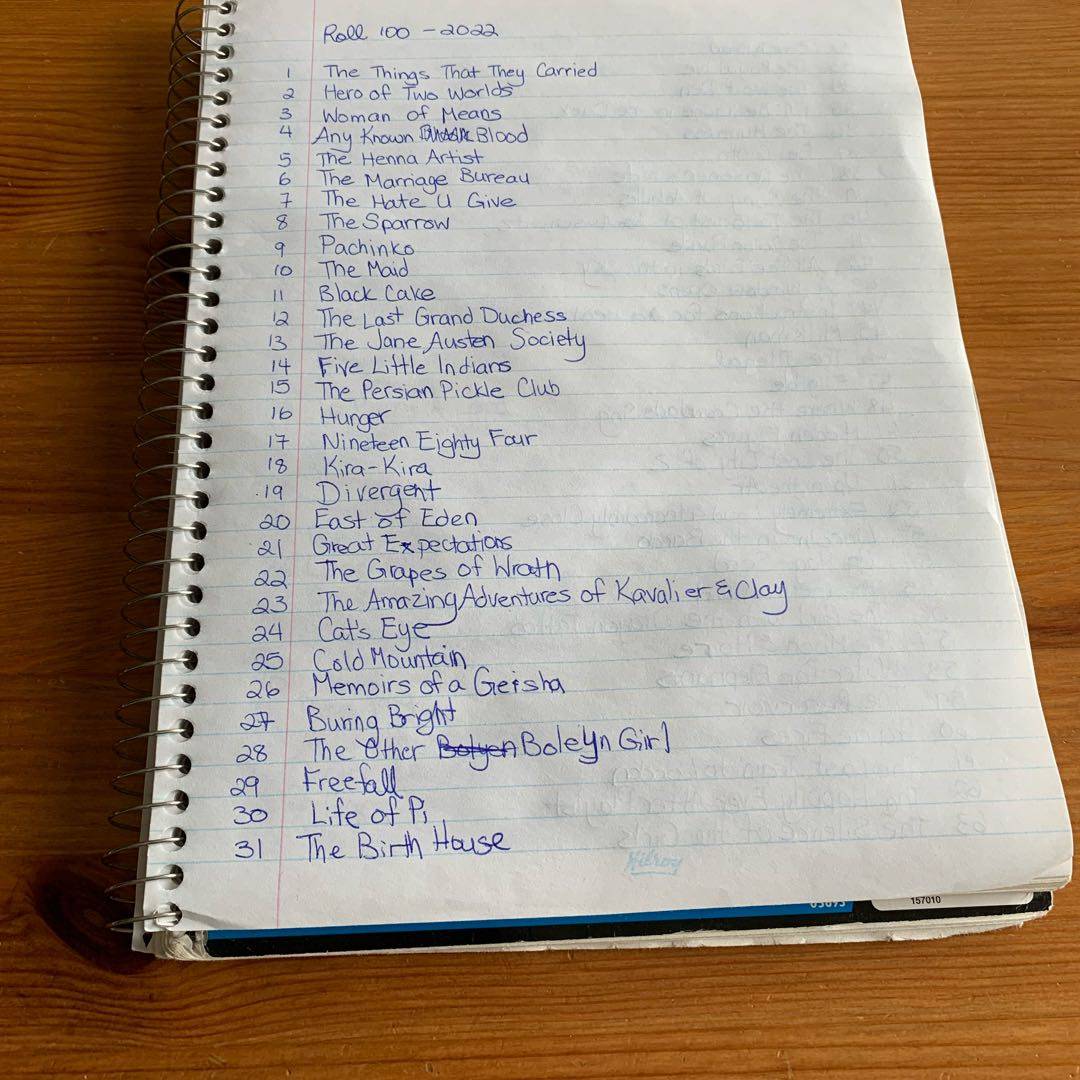 Roll 100 - 2022
1 The Things That They Carried
2 Hero of Two Worlds
3 Woman of Means
4 Any Known Blood
5 The Henna Artist
6 The Marriage Bureau
7 The Hate U Give
8 The Sparrow
9 Pachinko
10 The Maid
11 Black Cake
12 The Last Grand Duchess
13 The Jane Austen Society
14 Five Little Indians
15 The Persian Pickle Club
16 Hunger
17 Nineteen Eighty Four
18 Kira-Kira
19 Divergent
20 East of Eden
21 Great Expectations
22 The Grapes of Wrath
23 The Amazing Adventures of Kavalier & Clay
24 Cat's Eye
25 Cold Mountain
26 Memoirs of a Geisha
27 Buring Bright
28 The Other Boleyn Girl
29 Freefall
30 Life of Pi
31 The Birth House
Hilroy
157010